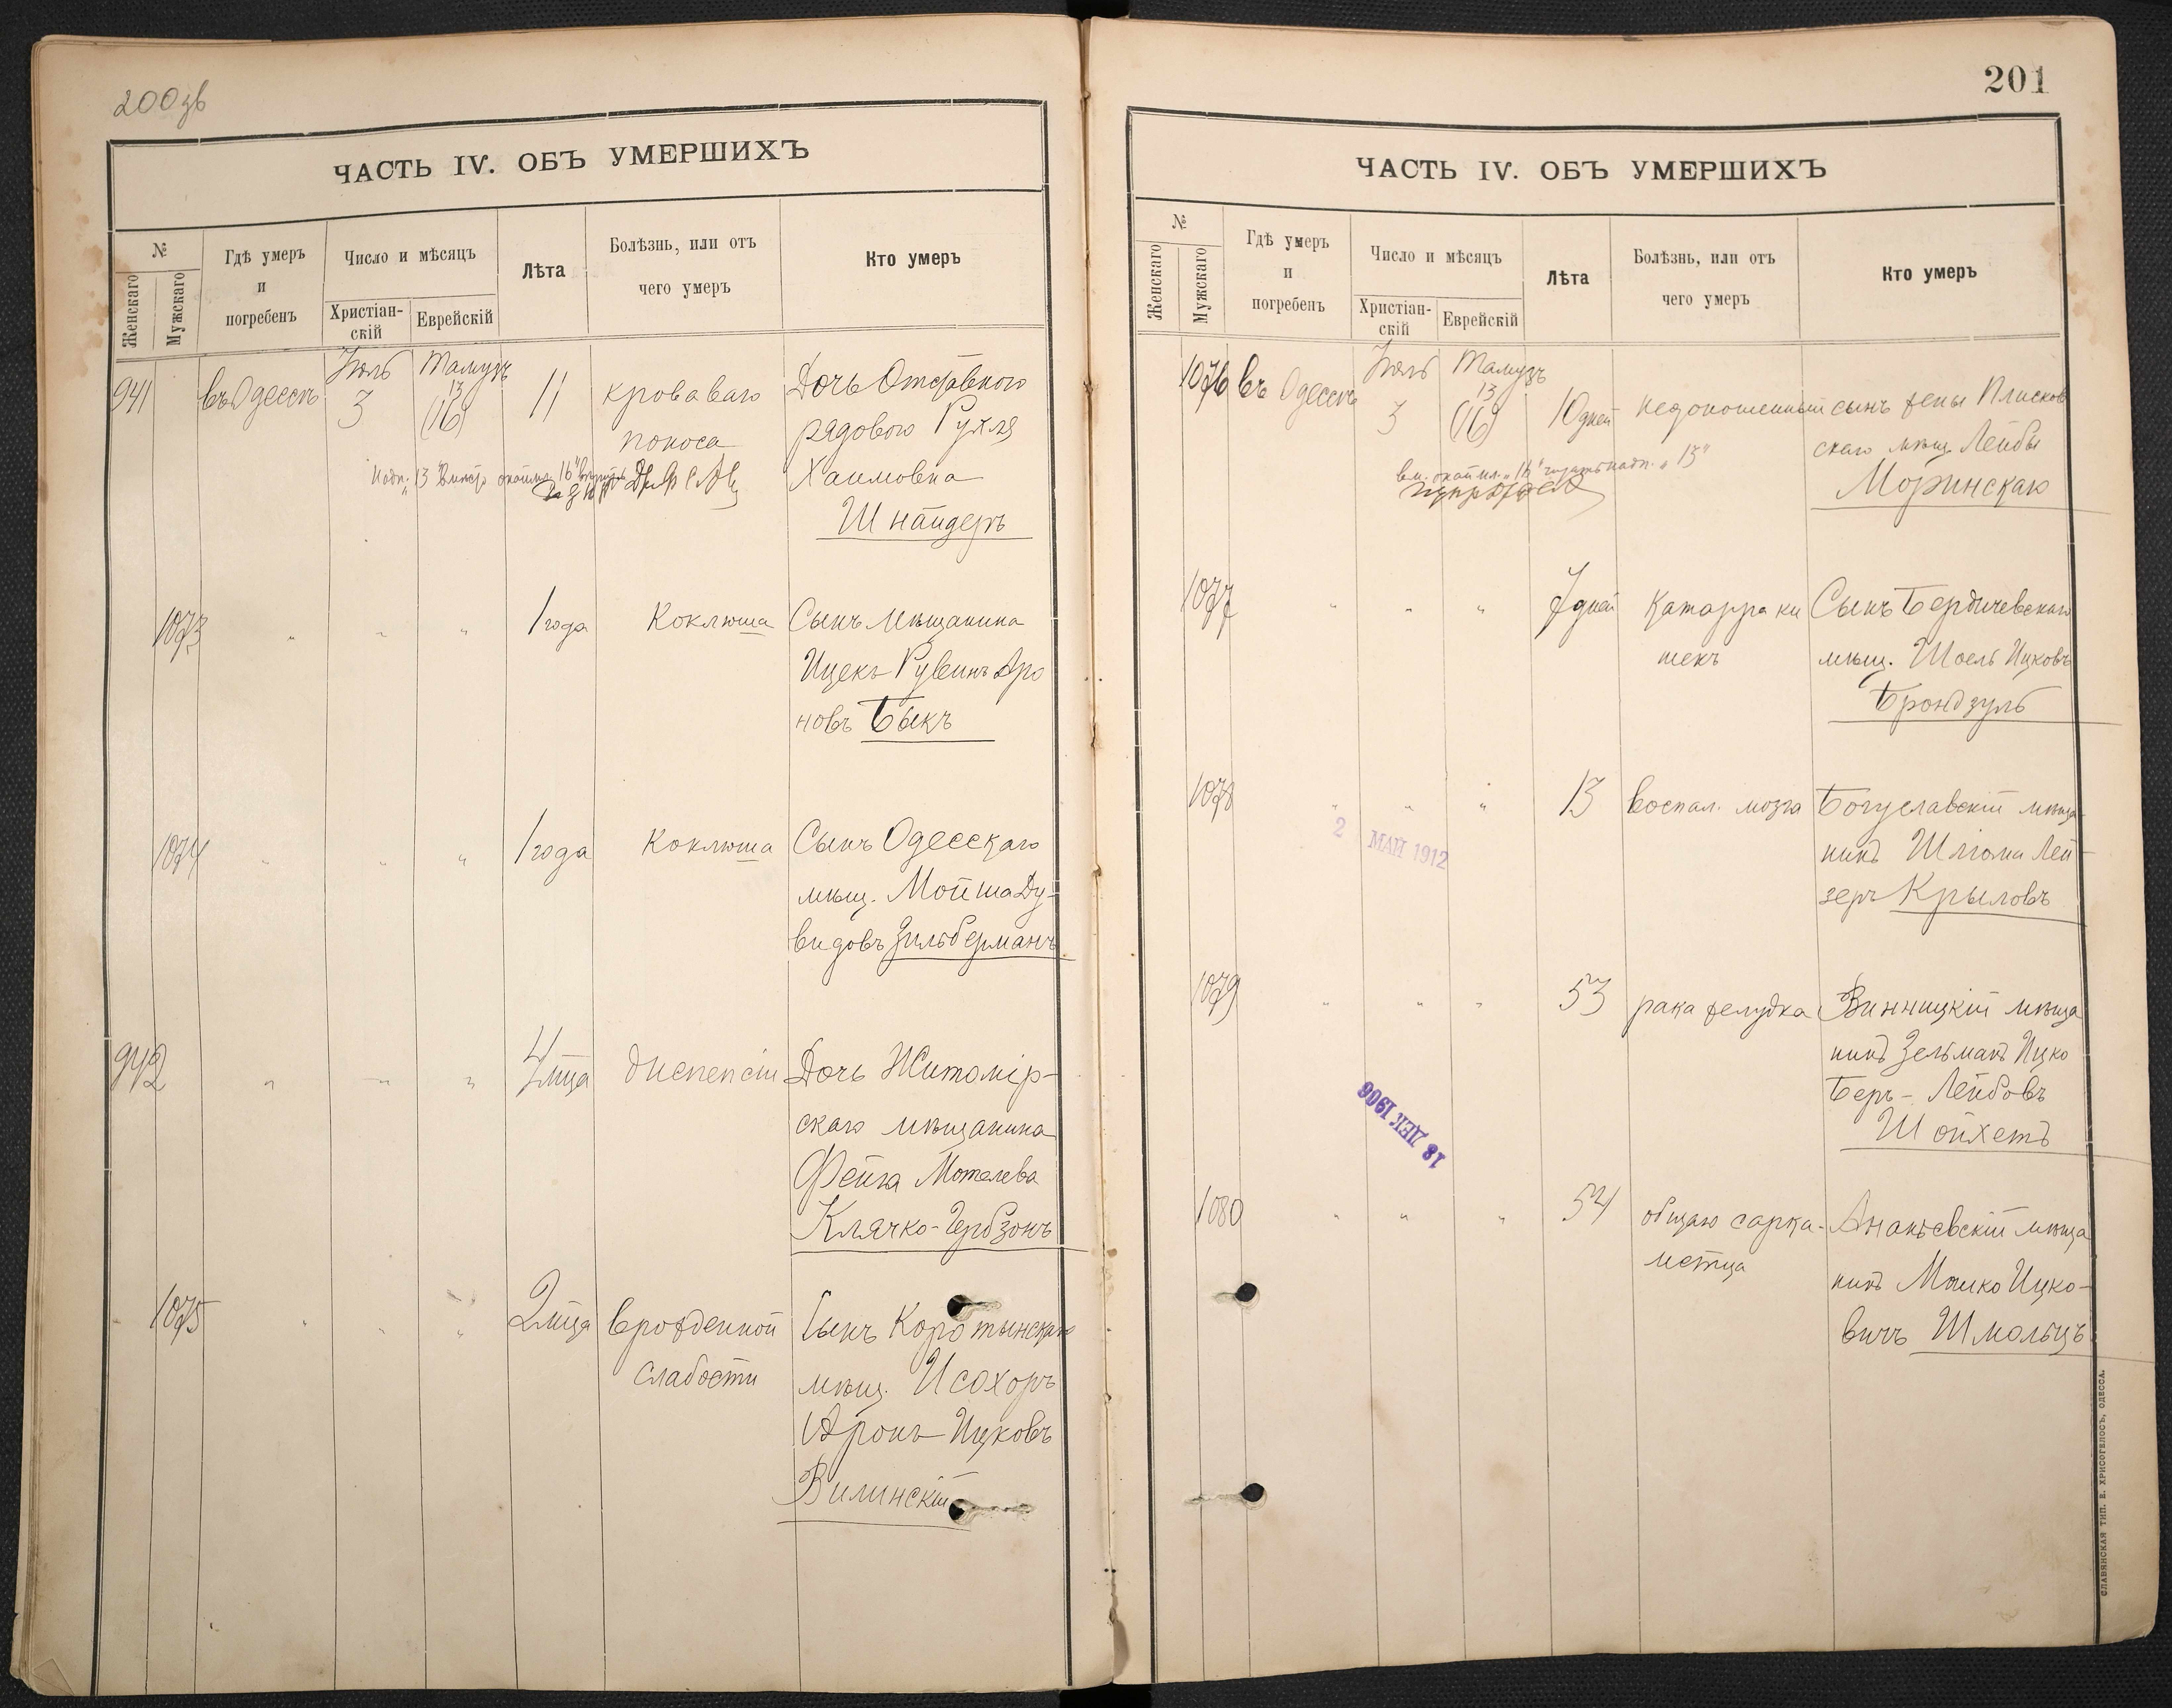 200зв
ЧАСТЬ IV. ОБЪ УМЕРШИХЪ
№
Женскаго
Мужскаго
Гдѣ умеръ
и
погребенъ
Число и мѣсяцъ
Христіан-
скій
Еврейскій
Лѣта
Болѣзнь, или отъ
чего умеръ
Кто умеръ
Іюль Тамузъ
13
941 въ Одессѣ 3 (16) 11 кроваваго Дочь Отставного
поноса рядового Рухля
Хаимовна
Шнайдеръ
1073 " " " 1 года Коклюша Сынъ мѣщанина
Ицекъ Рувинъ Аро
новъ Быкъ
1074 " " " 1 года Коклюша Сынъ Одесскаго
мѣщ. Мойша Ду-
видовъ Зильберманъ
942 " " " 4 м-ца диспепсіи Дочь Житомір-
скаго мѣщанина
Фейга Мотелева
Клячко-Гербзонъ
1075 " " " 2 м-ца врожденной Сынъ Коротынскаго
слабости мѣщ. Исохоръ
Аронъ Ицковъ
Вилинскій
201
ЧАСТЬ IV. ОБЪ УМЕРШИХЪ
№
Женскаго
Мужскаго
Гдѣ умеръ
и
погребенъ
Число и мѣсяцъ
Христіан-
скій
Еврейскій
Лѣта
Болѣзнь, или отъ
чего умеръ
Кто умеръ
Іюль Тамузъ
13
1076 въ Одессѣ 3 (16) 10 дней недоношенный сынъ жены Плисков
скаго мѣщ. Лейбы
вм. "16" надп. "13"
Моринскаго
1077 " " " 7 дней Катарра ки Сынъ Бердичевскаго
шекъ мѣщ. Шоель Ицковъ
Брондзуль
1078 " " " 13 воспал. мозга Богуславскій мѣща-
нинъ Шліома Лей-
зеръ Крыловъ
2 МАЙ 1912
1079 " " " 53 рака желудка Винницкій мѣща
нинъ Зельманъ Ицко
Беръ-Лейбовъ
Шойхетъ
18 ДЕК 1906
1080 " " " 54 общаго сарко- Ананьевскій мѣща
нинъ Мошко Ицко-
вичъ Шмольцъ
СЛАВЯНСКАЯ ТИП. Е. ХРИСОГЕЛОСЪ, ОДЕССА.